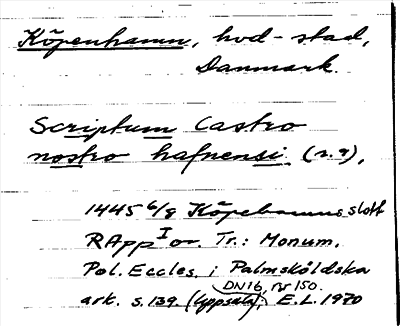 Köpenhamn, hvd-stad,
Danmark.
Scriptum Castro
nostro hafnensi (r. 9),
1445 6/8 Köpehamns slott
RApp I or. Tr.: Monum.
Pol. Eccles. i Palmsköldska
DN16, nr 150.
ark. s. 139 (Uppsala); E.L. 1970